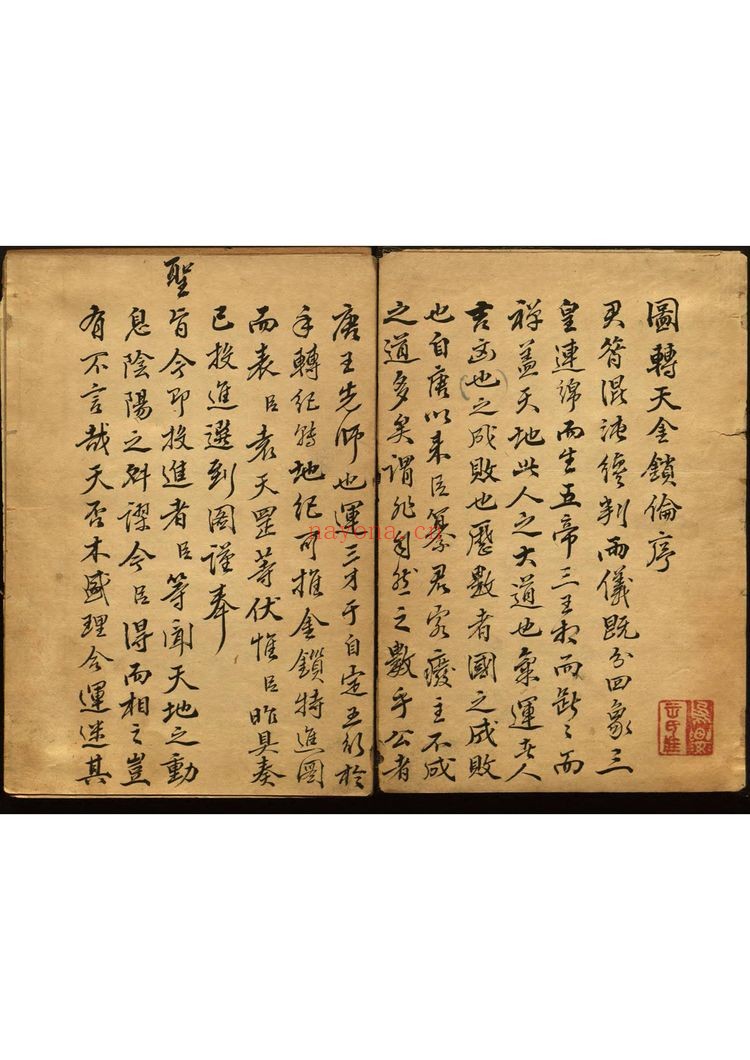 圖轉天金鎖倫序
昊筲混沌纔判兩儀既分四象三
皇連綿而生五帝三王相而繼之而
禪蓋天地此人之大道也氣運者人
言凶也之成敗也曆數者國之成敗
也自唐以來臣纂君容癈主不成
之道多矣謂非自然之數乎公者
唐王先師也運三才于自定五行於
手轉紀歸地紀可推金鎖特進圖
而表臣袁天罡等伏惟臣昨具奏
已投進選到圖謹奉
聖旨今即投進者臣等聞天地之動
息陰陽之斜謬今臣得而相之豈
有不言哉天否木盛理今運迷其
nayona.cn